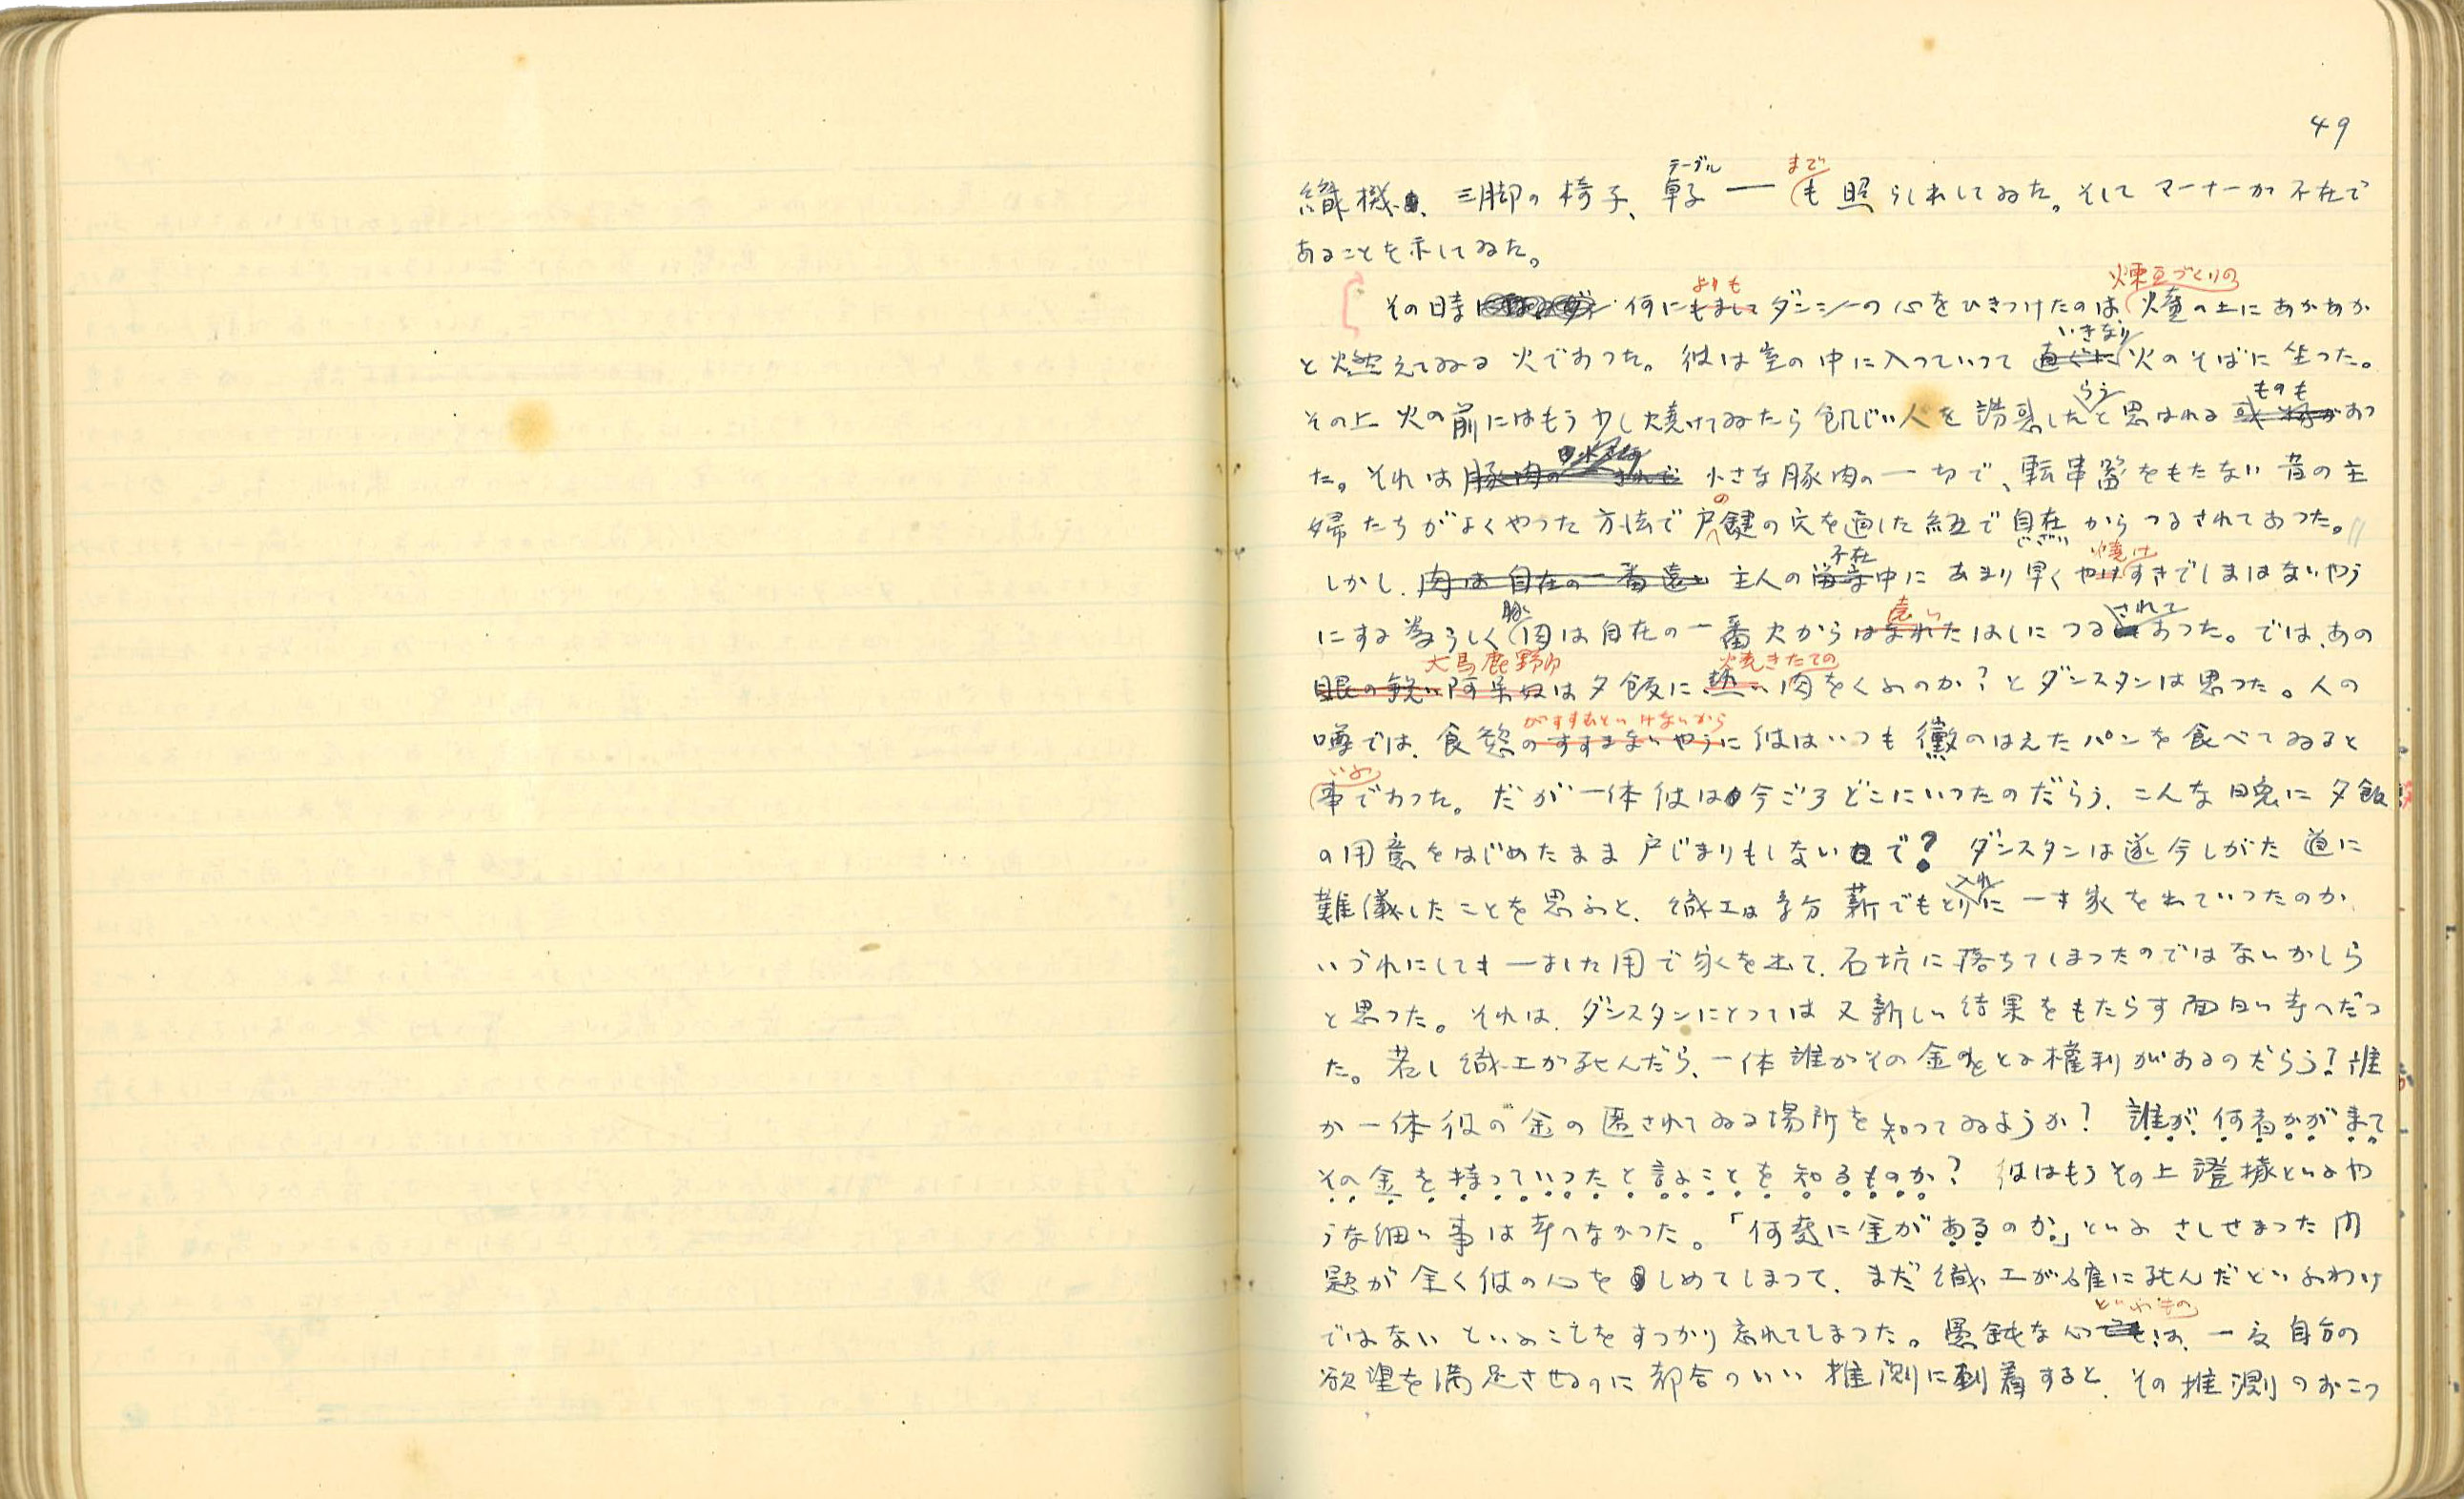 49
織機、三脚の椅子、卓子テーブル ― までも照らしれしてゐた。そしてマーナーが不在で
あることを示してゐた。
その時 何によりもダンシーの心をひきつけたのは煉瓦づくりの爐の上にあかあか
と燃えてゐる火であつた。彼は室の中に入つていつていきなり火のそばに坐つた。
その上火の前にはもう少し焼けてゐたら飢じい人を誘惑したらうと思はれるものもあつ
た。それは 小さな豚肉の一切で、転串器をもたない昔の主
婦たちがよくやつた方法で戸の鍵の穴を通した紐で自在じざいからつるされてあつた。
しかし、主人の不在中にあまり早く焼けすぎてしまはないやう
にする為らしく豚肉は自在の一番火から遠いはしにつるされてあつた。では、あの
大馬鹿野郎は夕飯に焼きたての肉をくふのか?とダンスタンは思つた。人の
噂では、食慾がすすむといけないから彼はいつも黴のはえたパンを食べてゐると
いふ事であつた。だが一体彼は今ごろどこにいつたのだらう、こんな晩に夕飯
の用意をはじめたまま戸じまりもしないで? ダンスタンは遂今しがた道に
難儀したことを思ふと、織工は多分薪でもとり入れに一寸家を出ていつたのか
いづれにしても一寸した用で家を出て、石坑に落ちてしまつたのではないかしら
と思つた。それは、ダンスタンにとつては又新しい結果をもたらす面白い考へだつ
た。若し織工が死んだら、一体誰がその金をとる権利があるのだらう?誰
か一体彼の金の匿されてゐる場所を知つてゐようか? 誰が、何者かがまて
その金を持つていつたと言ふことを知るものか? 彼はもうその上證據といふや
うな細い事は考へなかつた。「何處に金があるのか」といふさしせまつた問
題が全く彼の心をしめてしまつて、まだ織工が確に死んだといふわけ
ではないといふことをすつかり忘れてしまつた。愚鈍な心といふものは、一度自分の
欲望を満足させるのに都合のいい推測に到着すると、その推測のおこつ